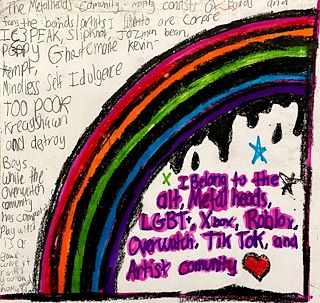 The Metalheads Community mostly consists of Bands and
fans the bands/artists I listen to are Corpse
ICE SPEAK, Slipknot, Jazmin bean,
POPPY Ghostemane kevin
kempf,
Mindless Self Idulgence
TOO POOR
Kreayshawn
and detroy
Boys
While the
overwatch
comunity
has
Play with
is a
game
I Belong to the
alt, Metal heads,
LGBT+, Xbox, Roblox,
Overwatch, Tik Tok, and
Artist comunity